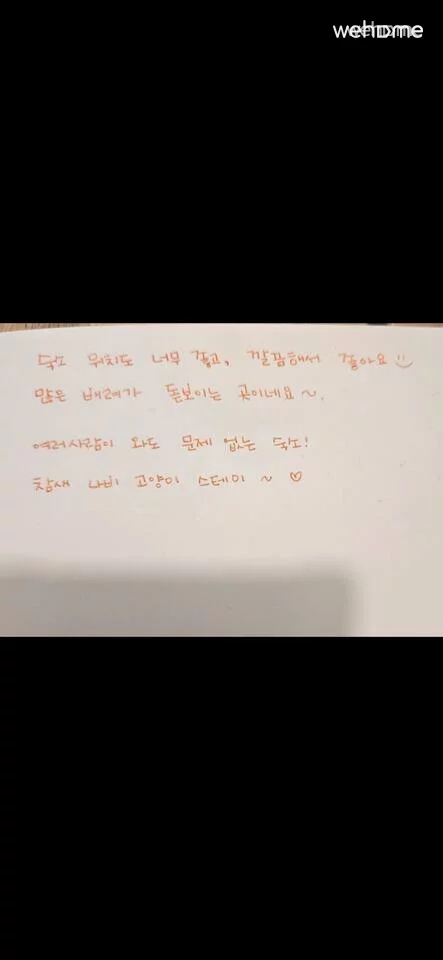 wehome
숙소 위치도 너무 좋고, 깔끔해서 좋아요
많은 배려가 돋보이는 곳이네요~.
여러사람이 와도 문제 없는 숙소!
참새 나비 고양이 스테이 ~ ♡